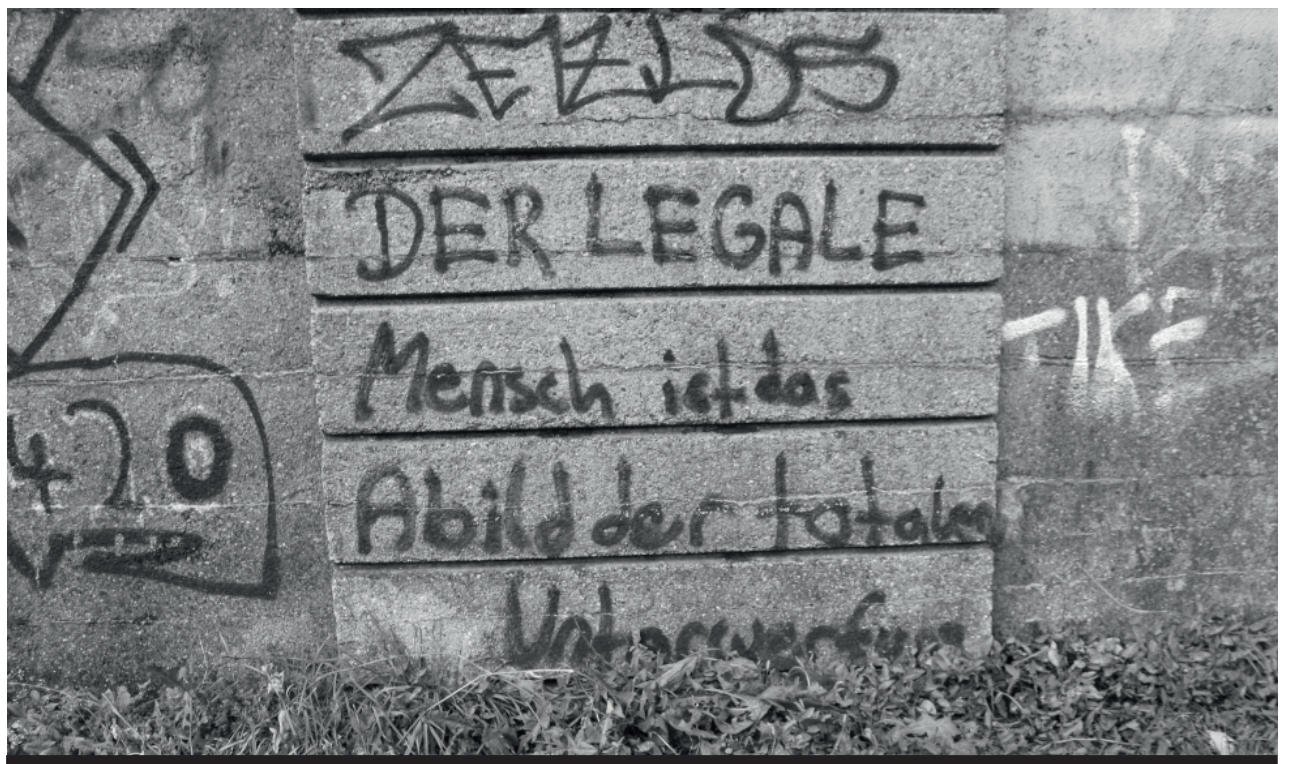 DER LEGALE
Mensch ist das
Abild der totalen
Unterwerfung
420